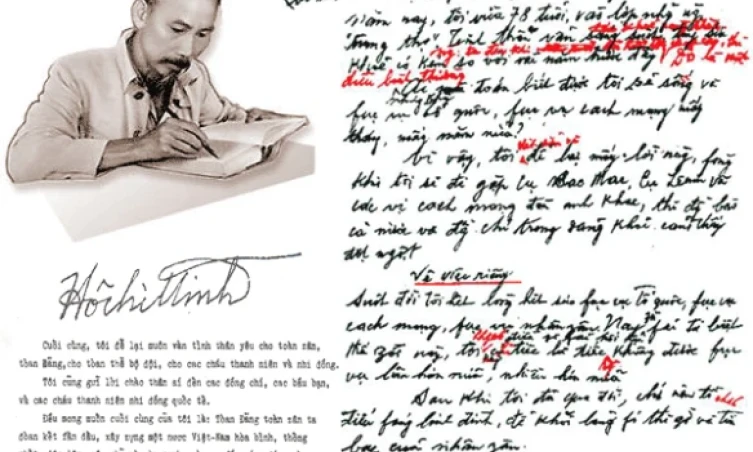 Hồ Chí Minh
Cuối cùng, tôi để lại muôn vàn tình thân yêu cho toàn zân,
toan Đảng, cho toàn thể bộ đội, cho các cháu thanh niên và nhi đồng.
Tôi cũng gửi lời chào thân ái đến các đồng chí, các bầu bạn,
và các cháu thanh niên nhi đồng quốc tế.
Điều mong muốn cuối cùng của tôi là: Toan Đảng toàn zân ta
đoan kết fấn đấu, xây zựng một nước Việt-Nam hòa bình, thống
năm nay, tôi vừa 78 tuổi, vào lớp những ng
"trung thọ". Tinh thần vẫn
khoẻ có kém so với vài năm trước đây Đó là một
điều bình thường
ai mà đoán biết được tôi sẽ sống và
fục vụ tổ quốc, fục vụ cách mạng mấy
tháng, mấy năm nữa?
Vì vậy, tôi để lại mấy lời này, fòng
khi tôi sẽ đi gặp cụ Các Mác, cụ Lênin và
các vị cách mạng đàn anh khác, thì đ bào
cả nước và đ chí trong đảng khỏi cảm thấy
đột ngột
Về việc riêng
Suốt đời tôi hết lòng hết sức fục vụ tổ quốc, fục vụ
cách mạng, fục vụ nhân zân. Nay zù fải từ biệt
thế zới này, tôi tiếc là tiếc không được fục
vụ lâu hơn nữa, nhiều hơn nữa
Sau khi tôi đã qua đời, chớ nên tổ chức
điếu fúng linh đình, để khỏi lãng fí thì zờ và tiền
bạc của nhân zân.